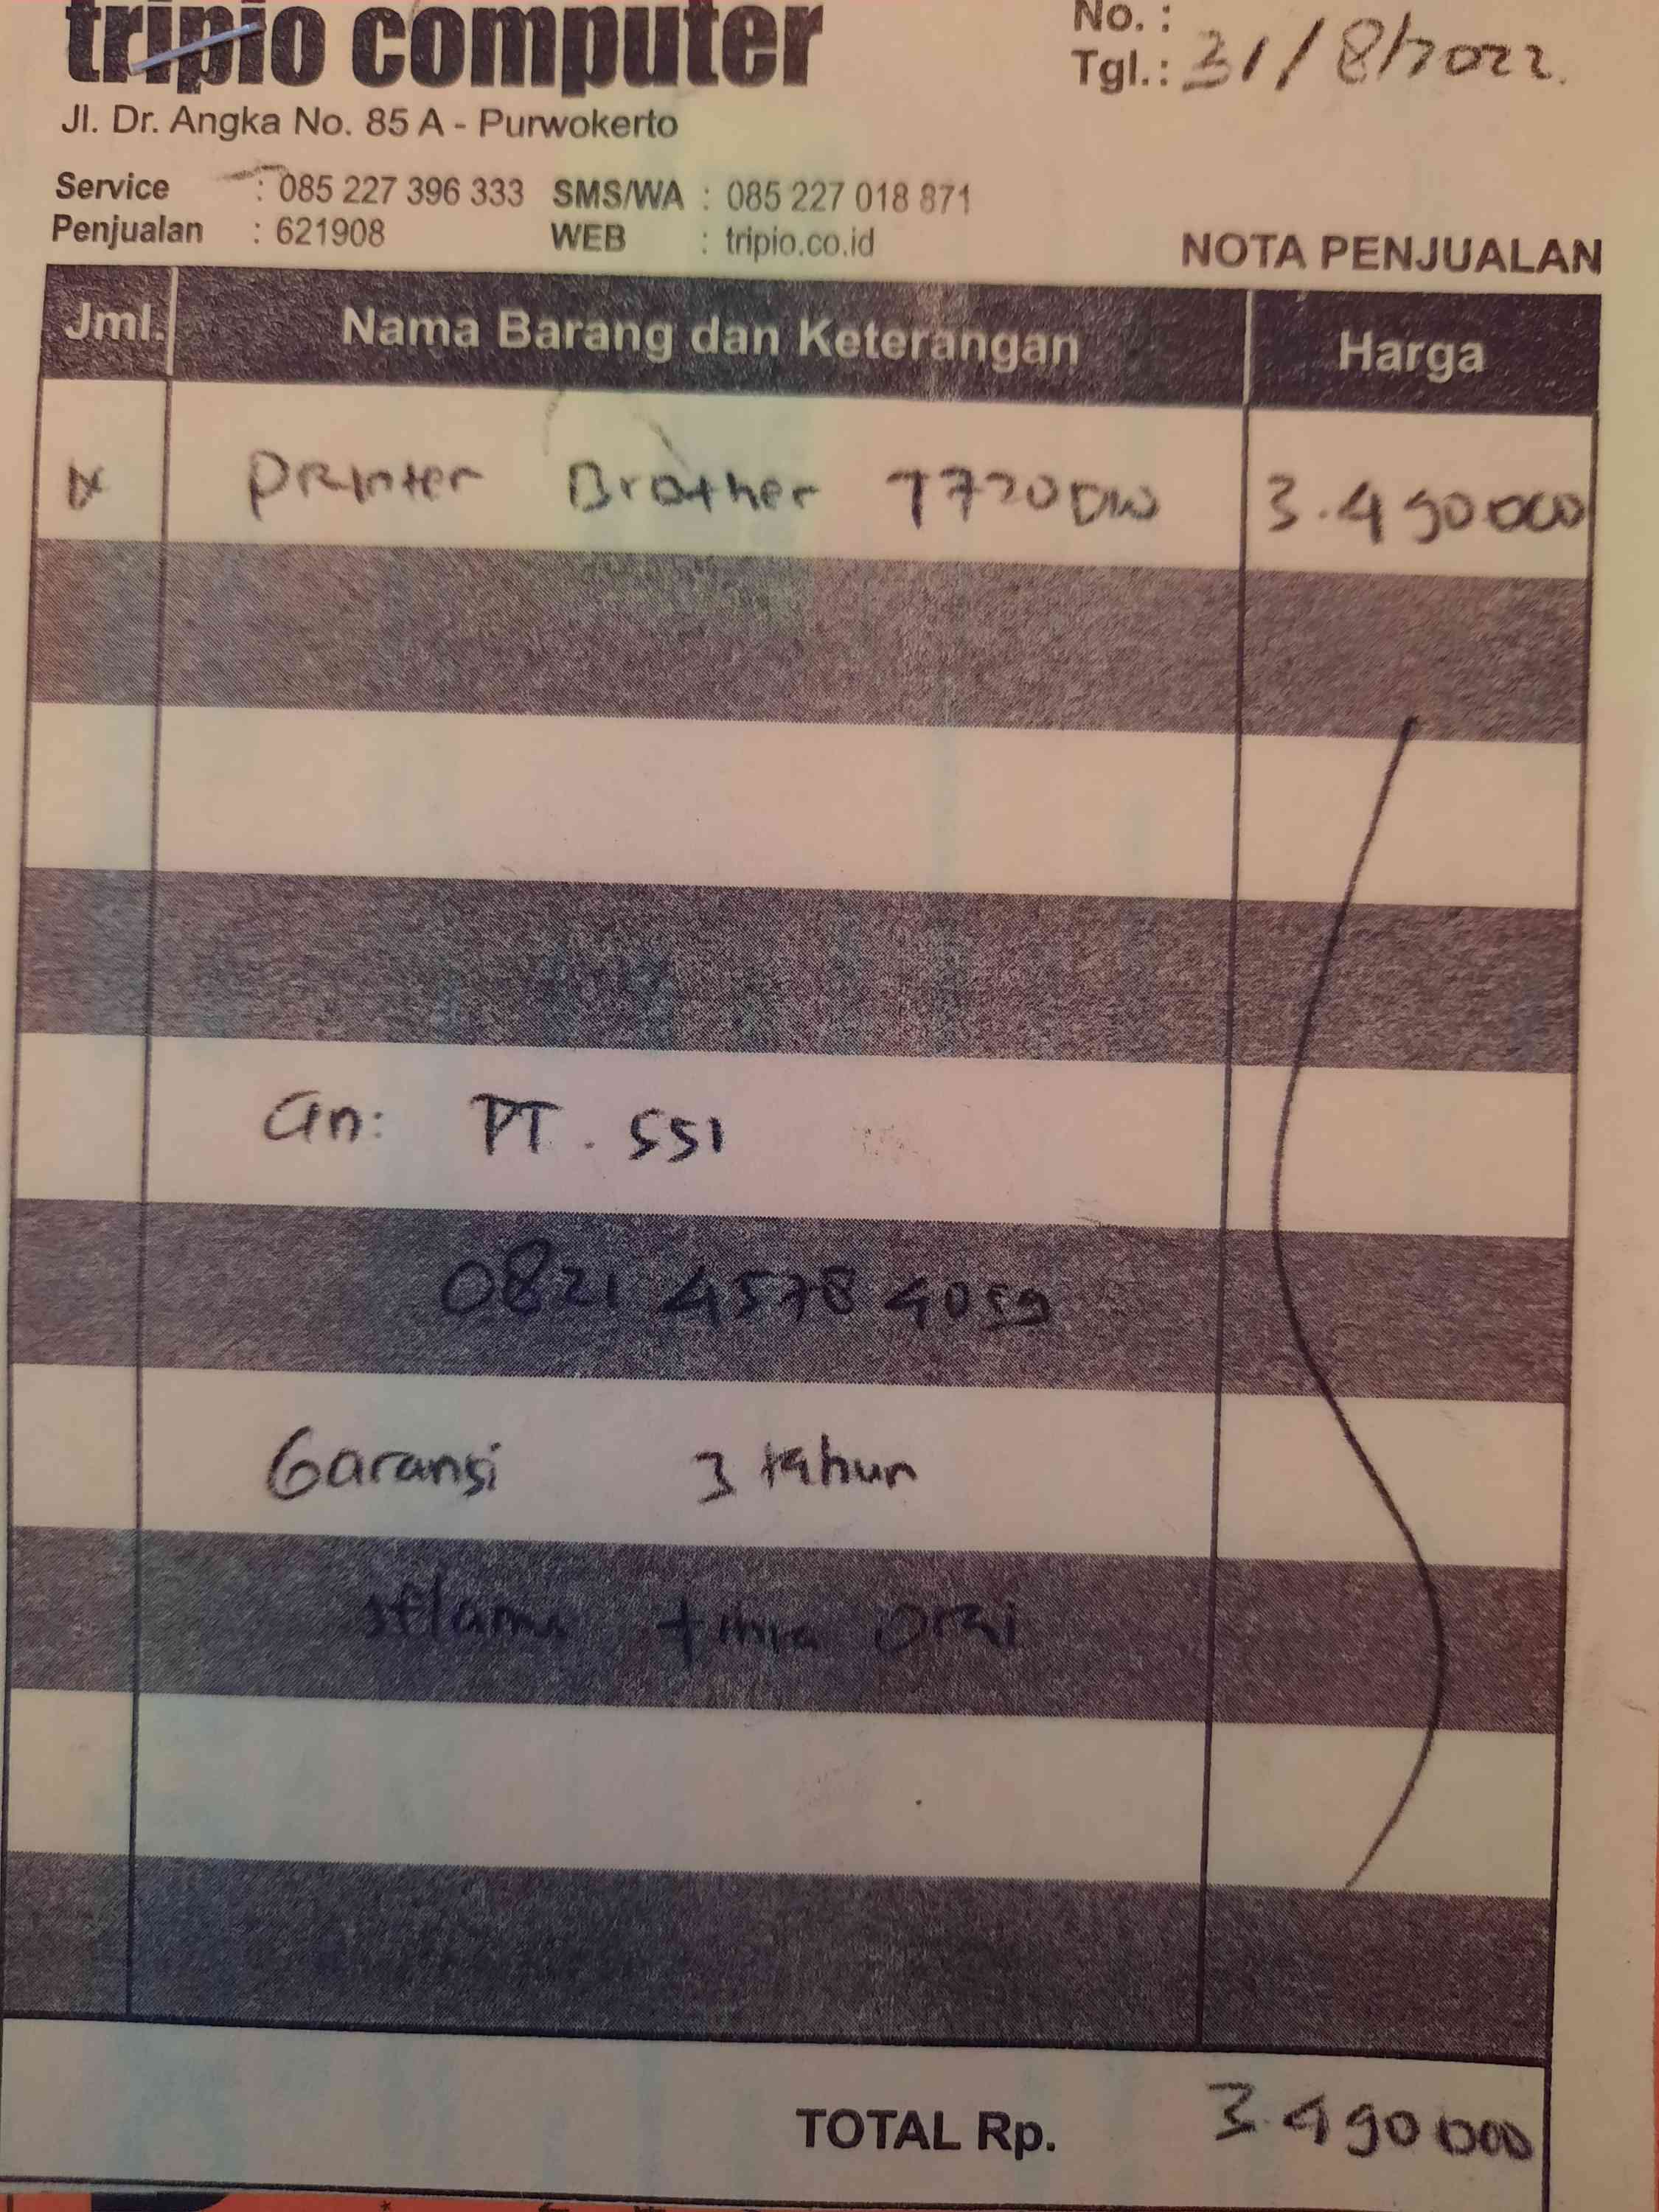 tripio computer
No. :
Tgl.: 31/8/2022.
Jl. Dr. Angka No. 85 A - Purwokerto
Service : 085 227 396 333 SMS/WA : 085 227 018 871
Penjualan : 621908 WEB : tripio.co.id
NOTA PENJUALAN
Jml. Nama Barang dan Keterangan Harga
1x Printer Brother T720DW 3.490000
an: PT. SSI
0821 4578 4059
Garansi 3 tahun
selama tinta ori
TOTAL Rp. 3.490000